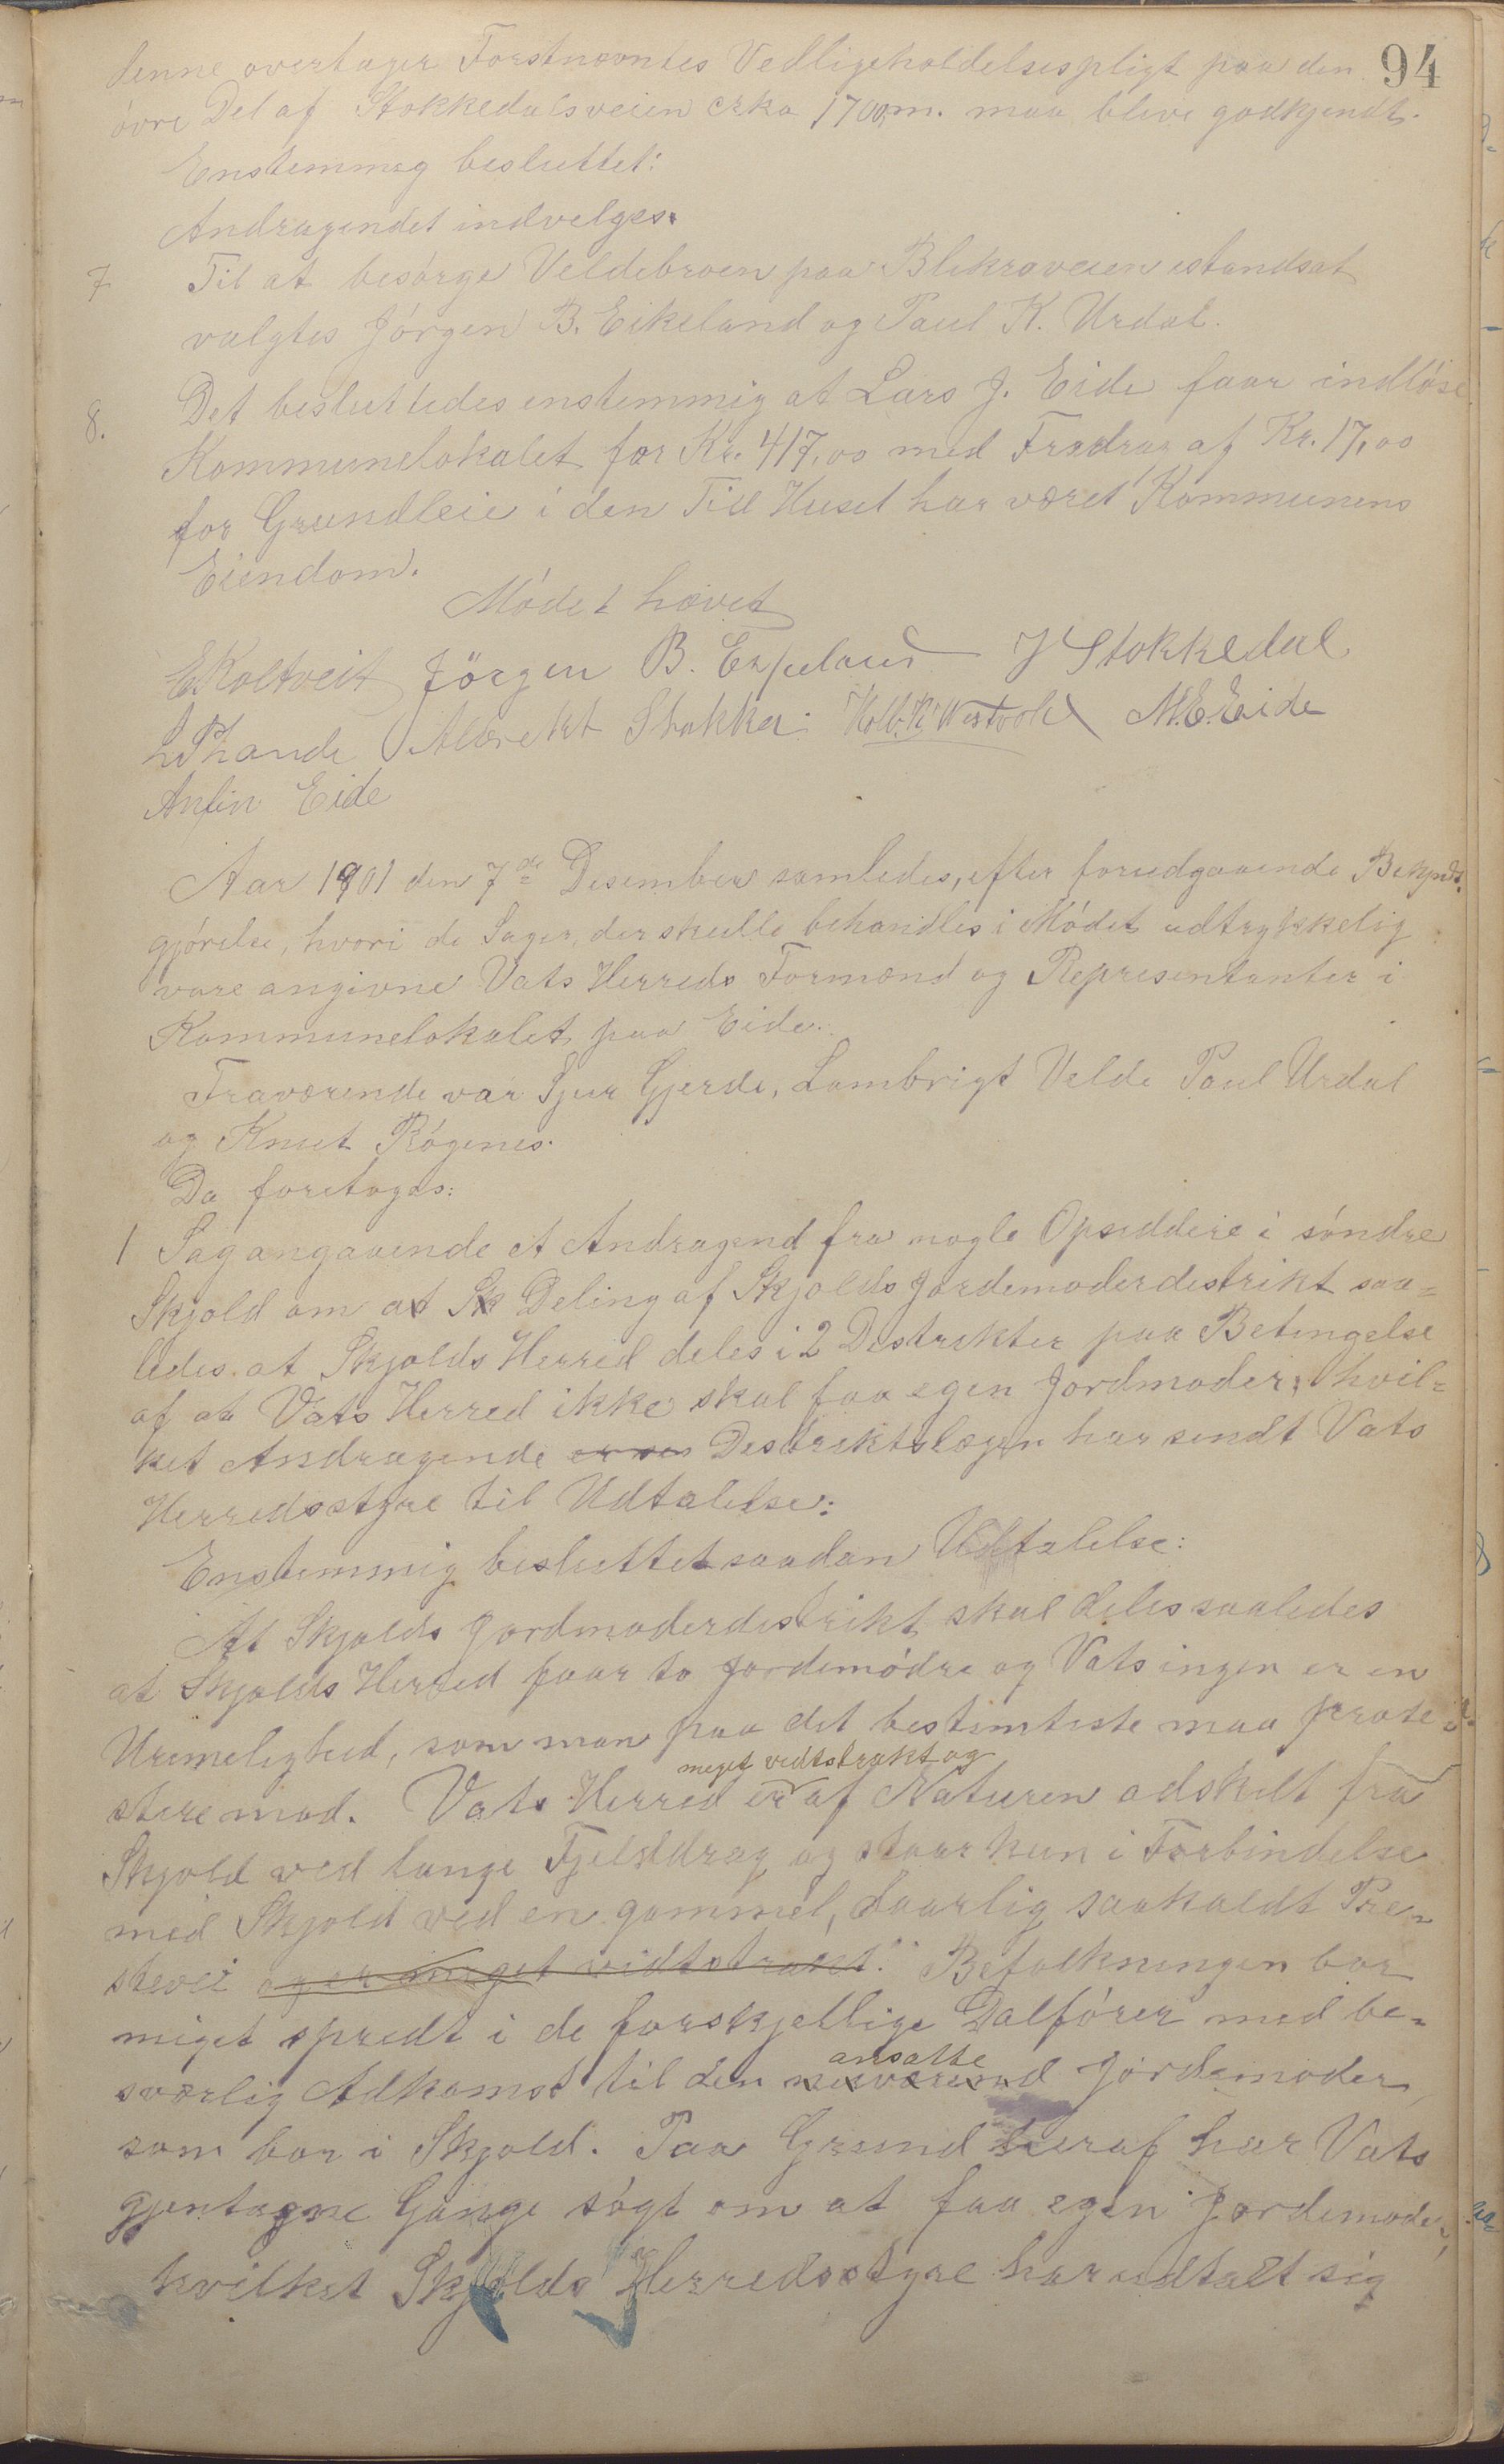 94
denne overtager Forstnævntes Vedligeholdelsespligt paa den
óvre Del af Stokkedalsveien cxka 1700 m. maa blive godkjendt.
Enstemmig besluttet:
Andragendet indvelges.
7 Til at besórge Veldebroen paa Blikraveien istandsat
valgtes Jórgen B. Eikeland og Paul K. Urdal.
8. Det besluttedes enstemmig at Lars J. Eide faar indlóse
Kommunelokalet for Kr. 417,00 med Fradrag af Kr. 17,00
for Grundleie i den Tid Huset har været Kommunens
Eiendom.
Módet hævet
E Koltveit Jörgen B. Eikeland J Stokkedal
Albrekt Stakka M.E. Eide
Anfin Eide
Aar 1901 den 7de Desember samledes, efter forudgaaende Bekjendt-
gjórelse, hvori de Sager, der skulle behandles i Módet udtrykkelig
vare angivne Vats Herreds Formænd og Representanter i
Kommunelokalet paa Eide.
Fraværende var Sjur Gjerde, Lambrigt Velde Paul Urdal
og Knut Rógenes.
Da foretoges:
1 Sag angaaende et Andragend fra nogle Opsiddere i sóndre
Skjold om at Sk Deling af Skjolds Jordemoderdestrikt saa=
ledes. at Skjolds Herred deles i 2 Destrikter paa Betingelse
af at Vats Herred ikke skal faa egen Jordmoder, hvil=
ket Andragende Destriktslægen har sendt Vats
Herredsstyre til Udtalelse:
Enstemmig besluttet saadan Udtalelse:
At Skjolds Jordmoderdestrikt skal deles saaledes
at Skjolds Herred faar to Jordemódre og Vats ingen er en
Urimelighed, som man paa det bestemteste maa prote=
meget vidtstrakt og
stere mod. Vats Herred er af Naturen adskilt fra
Skjold ved lange Fjelddrag og staar kun i Forbindelse
med Skjold ved en gammel, daarlig saakaldt Pre=
stevei og er meget vidtstrakt. Befolkningen bor
meget spredt i de forskjellige Dalfórer med be=
ansatte
sværlig Adkomst til den nuværend Jordemoder,
som bor i Skjold. Paa Grund heraf har Vats
gjentagne Gange sógt om at faa egen Jordemoder,
hvilket Skjolds Herredsstyre har udtalt sig